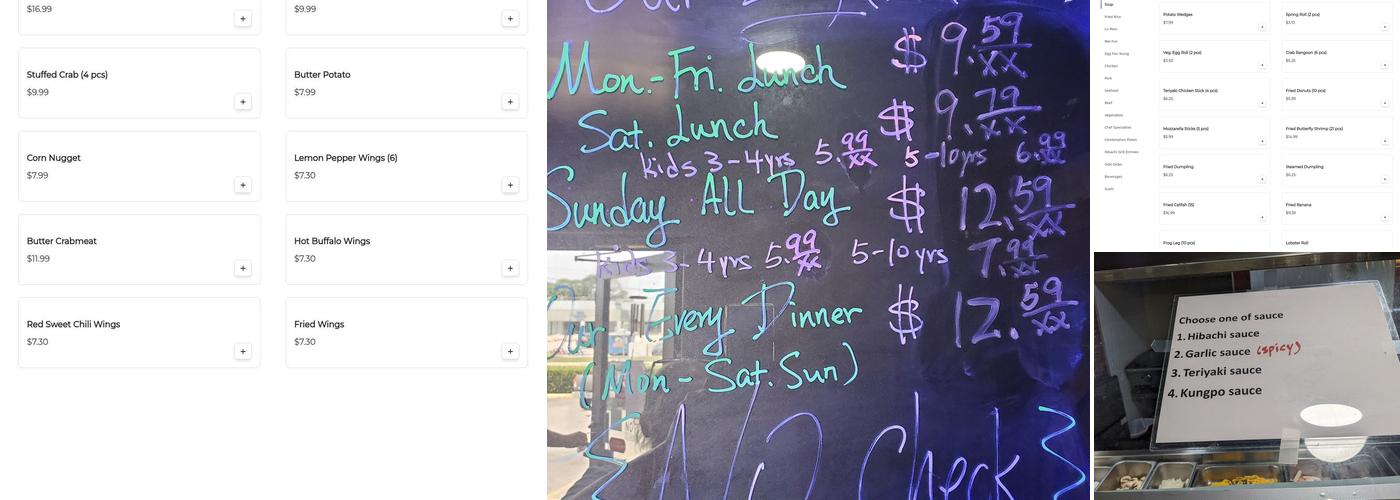 $16.99
+
$9.99
+
Stuffed Crab (4 pcs)
$9.99
+
Butter Potato
$7.99
+
Corn Nugget
$7.99
+
Lemon Pepper Wings (6)
$7.30
+
Butter Crabmeat
$11.99
+
Hot Buffalo Wings
$7.30
+
Red Sweet Chili Wings
$7.30
+
Fried Wings
$7.30
+
Mon.-Fri. Lunch $ 9.59/xx
Sat. Lunch $ 9.79/xx
kids 3-4yrs 5.99/xx 5-10yrs 6.99/xx
Sunday All Day $ 12.59/xx
kids 3-4yrs 5.99/xx 5-10yrs 7.99/xx
Our Every Dinner $ 12.59/xx
(Mon-Sat. Sun)
{ No Check }
Soup
Fried Rice
Lo Mein
Mei Fun
Egg Foo Young
Chicken
Pork
Seafood
Beef
Vegetables
Chef Specialties
Combination Plates
Hibachi Grill Entrees
Side Order
Beverages
Sushi
Potato Wedges
$7.99
Spring Roll (2 pcs)
$3.10
Veg. Egg Roll (2 pcs)
$3.50
Crab Rangoon (6 pcs)
$5.25
Teriyaki Chicken Stick (4 pcs)
$6.25
Fried Donuts (10 pcs)
$5.99
Mozzarella Sticks (5 pcs)
$5.99
Fried Butterfly Shrimp (21 pcs)
$14.99
Fried Dumpling
$6.25
Steamed Dumpling
$6.25
Fried Catfish (15)
$16.99
Fried Banana
Frog Leg (10 pcs)
Lobster Roll
Choose one of sauce
1. Hibachi sauce
2. Garlic sauce (spicy)
3. Teriyaki sauce
4. Kungpo sauce